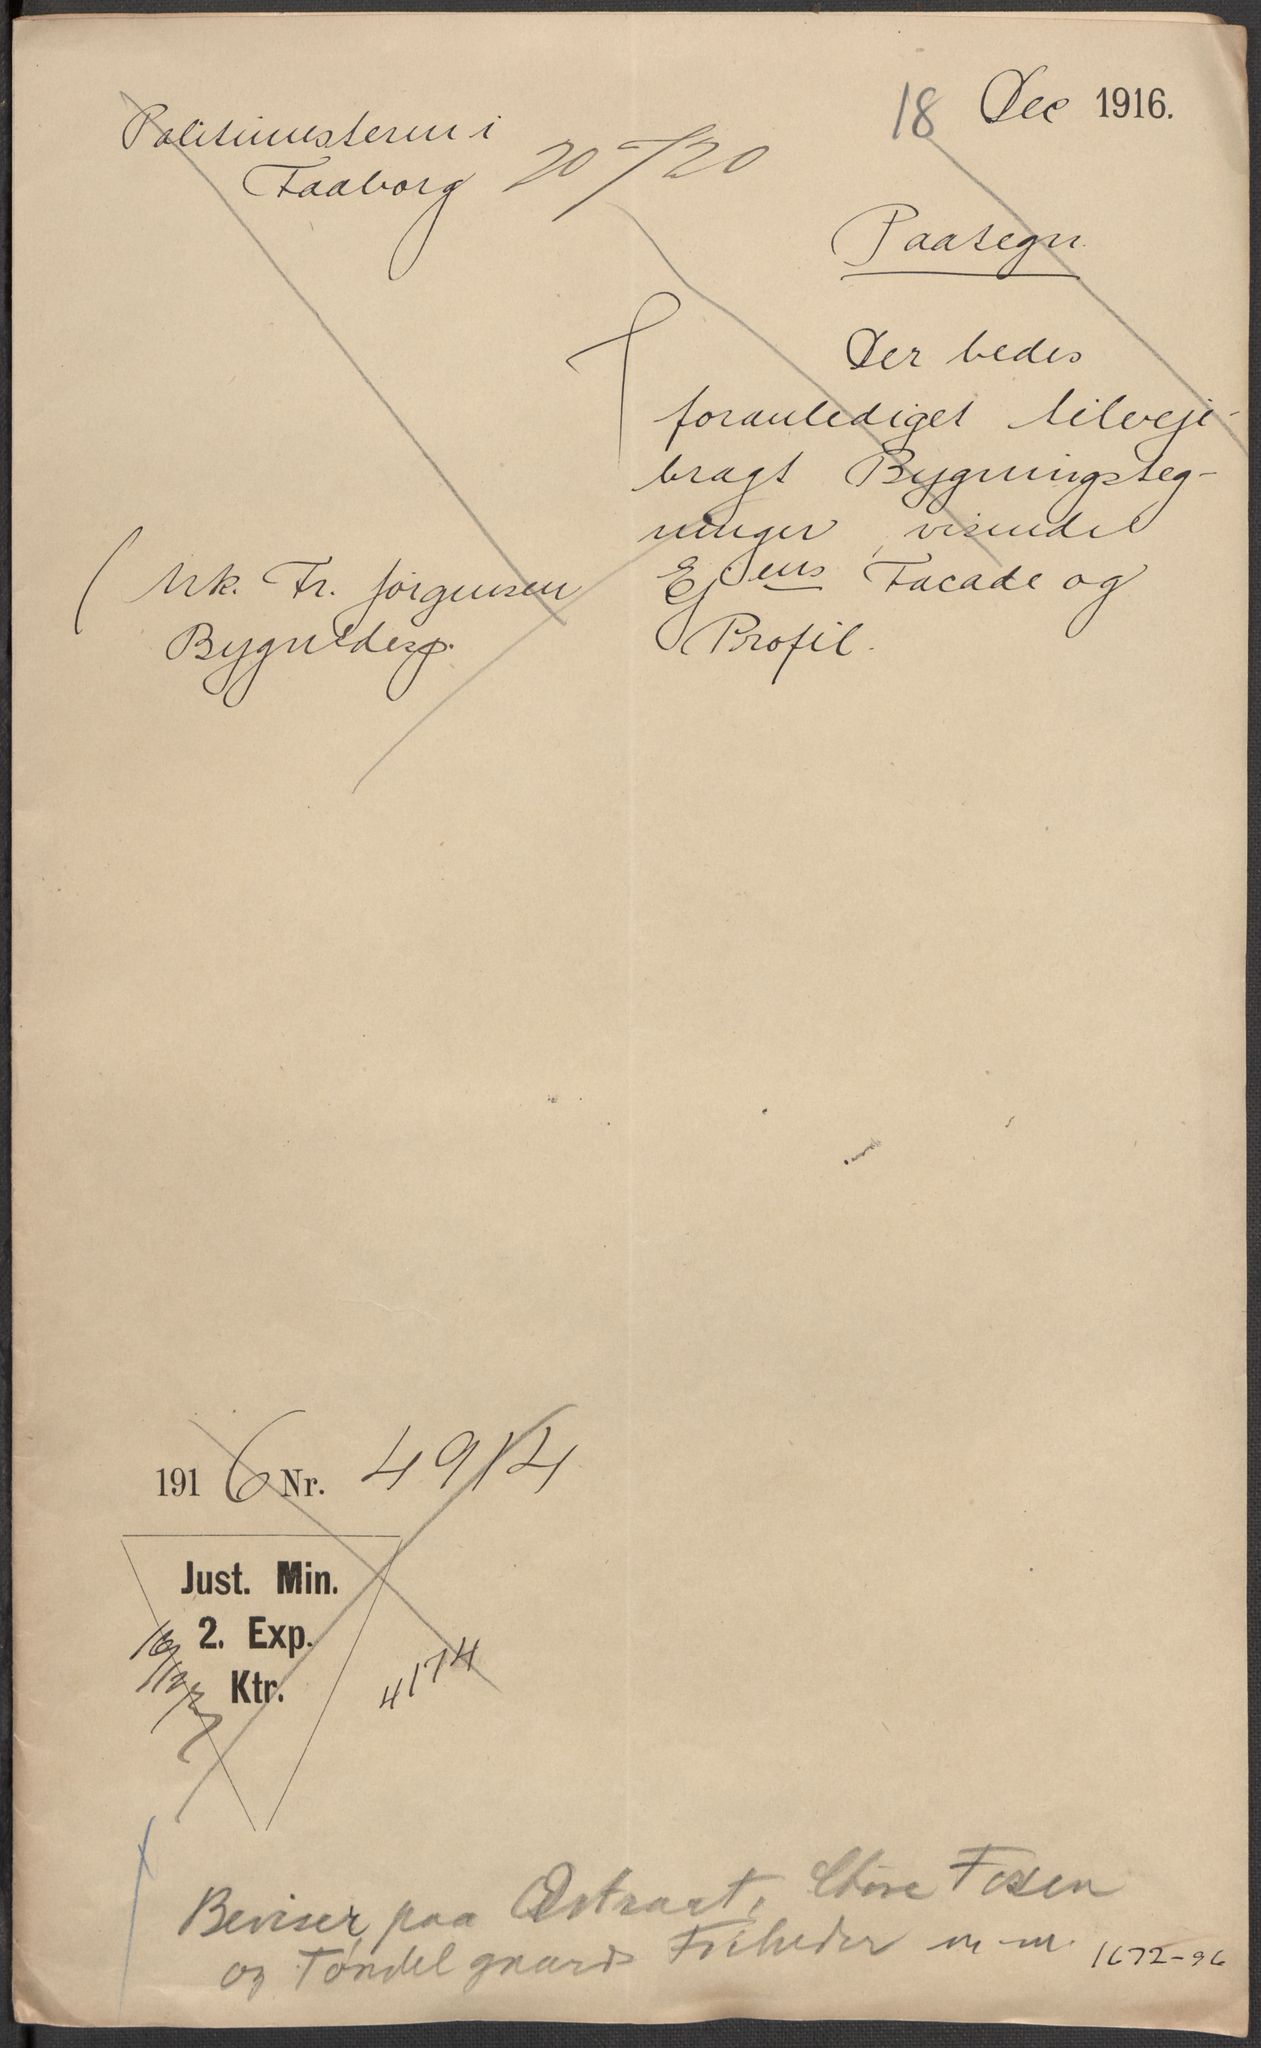 18 Dec 1916.
Politimesteren i
Faaborg
20/20
Paategn.
Der bedes
foranlediget tilveje-
bragt Bygningsteg-
ninger, visende
Ejens Facade og
Profil.
Mrk. Fr. Jørgensen
Bygn
1916 Nr. 4914
Just. Min.
2. Exp.
Ktr.
16/12
4174
Beviser paa Østraat, Store Fosen
og Tøndel gaards Friheder m m. 1672-96